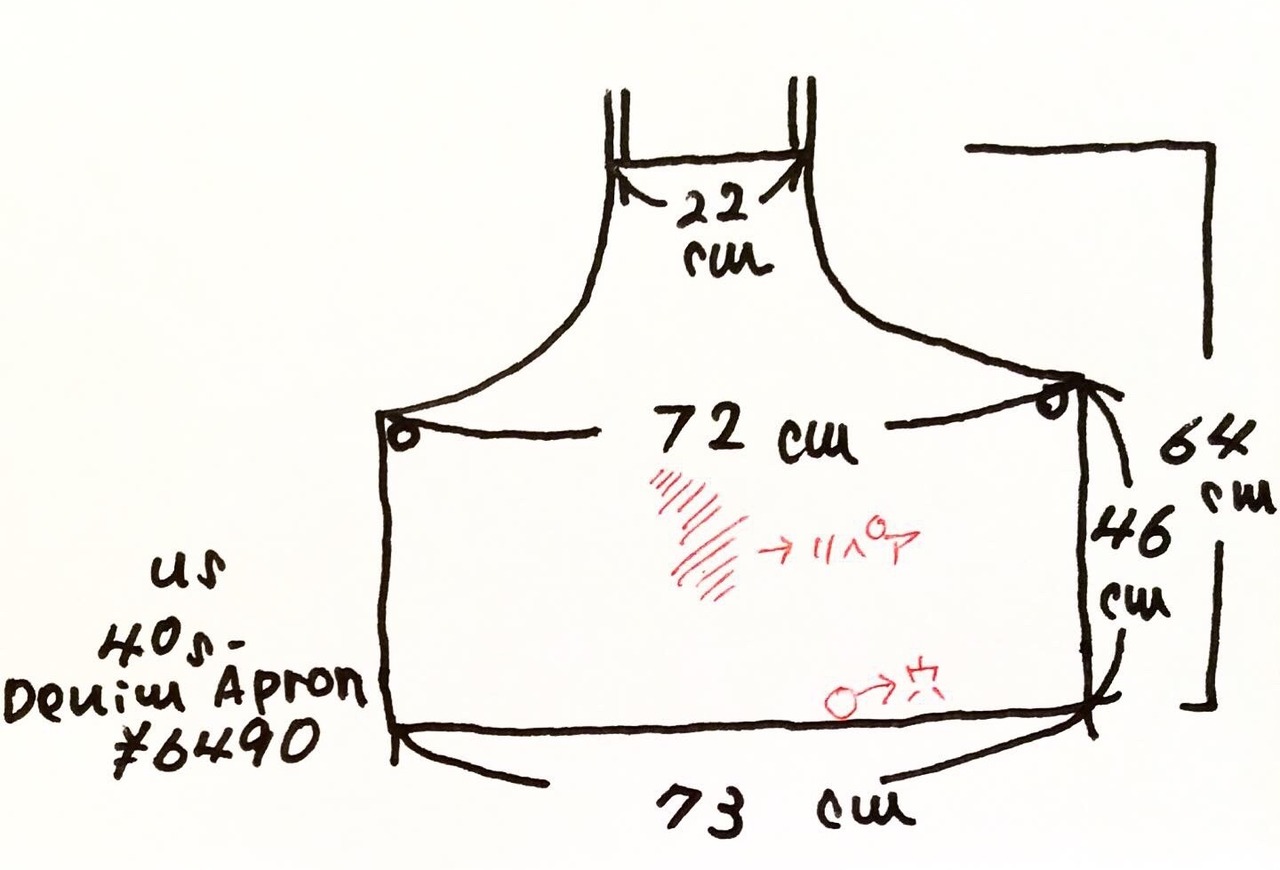 22
cm
72 cm
64
cm
46
cm
→ リペア
○→穴
us
40s-
Denim Apron
¥6490
73 cm